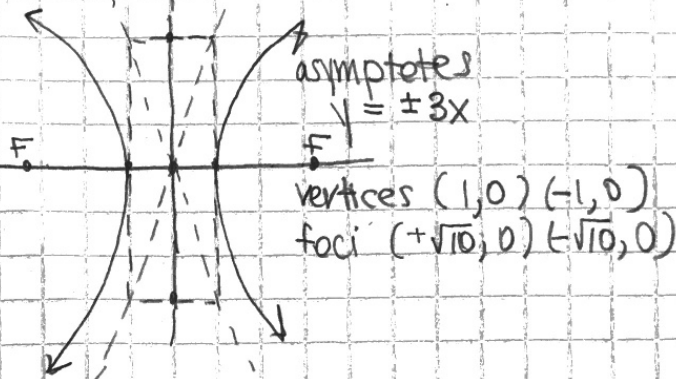 asymptotes
y = ±3x
F
F
vertices (1,0) (-1,0)
foci (+√10, 0) (-√10, 0)